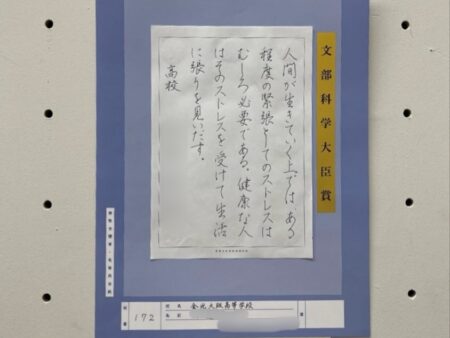 文部科学大臣賞
人間が生きていく上では、ある
程度の緊張としてのストレスは
むしろ必要である。健康な人
はそのストレスを受けて生活
に張りを見いだす。
高校
172
高等学校